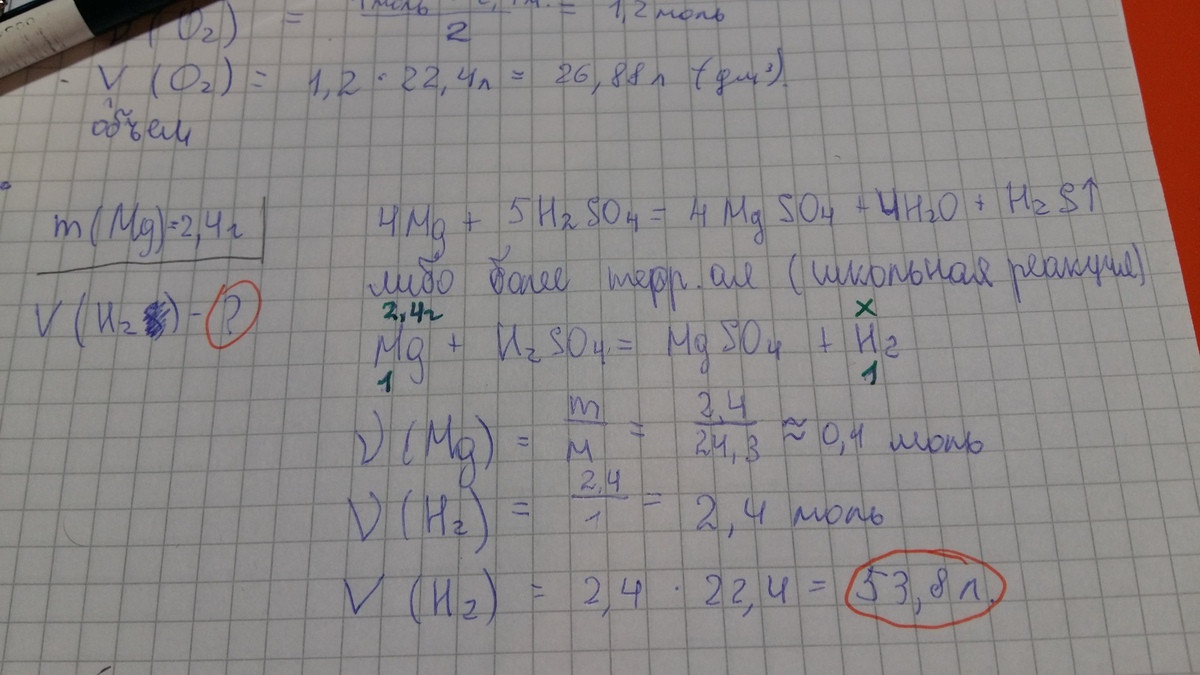 ν(O₂) = / 2 = 1,2 моль
- V (O₂) = 1,2 · 22,4л = 26,88л (дм³).
объем
m(Mg)=2,4г
4Mg + 5H₂SO₄ = 4MgSO₄ + 4H₂O + H₂S↑
либо более терр.ая (школьная реакция)
V(H₂) - ?
2,4г x
Mg + H₂SO₄ = MgSO₄ + H₂
1 1
ν(Mg) = m/M = 2,4/24,3 ≈ 0,1 моль
ν(H₂) = 2,4/1 = 2,4 моль
V(H₂) = 2,4 · 22,4 = 53,8л.